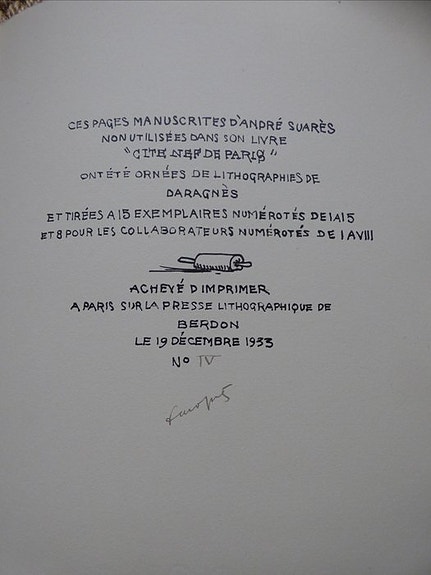 CES PAGES MANUSCRITES D'ANDRÉ SUARÈS
NON UTILISÉES DANS SON LIVRE
"CITE NEF DE PARIS"
ONT ÉTÉ ORNÉES DE LITHOGRAPHIES DE
DARAGNÈS
ET TIRÉES A 15 EXEMPLAIRES NUMÉROTÉS DE 1 A 15
ET 8 POUR LES COLLABORATEURS NUMÉROTÉS DE I A VIII
ACHEVÉ D'IMPRIMER
A PARIS SUR LA PRESSE LITHOGRAPHIQUE DE
BERDON
LE 19 DÉCEMBRE 1933
No IV